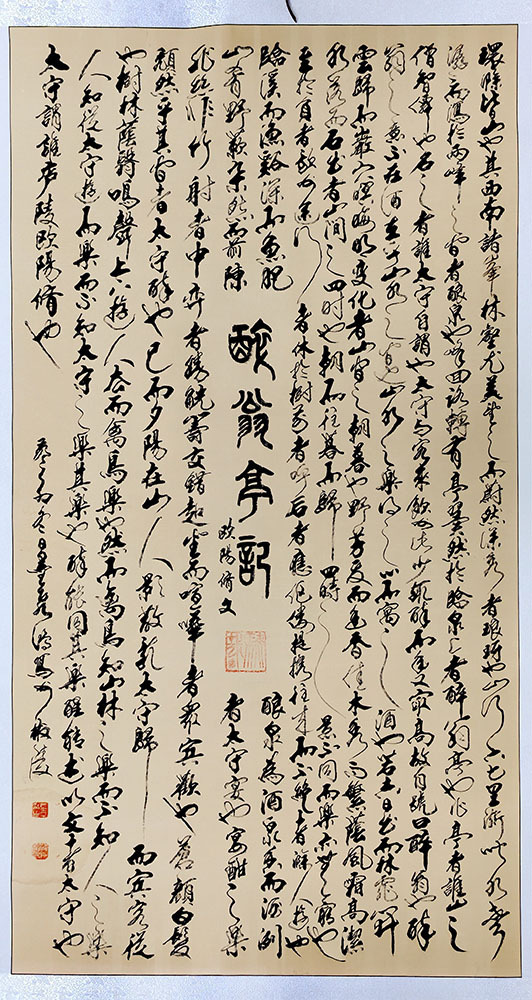 環滁皆山也其西南諸峯林壑尤美望之而蔚然深秀者琅琊也山行六七里漸聞水聲
潺潺而瀉於兩峰之間者釀泉也峰回路轉有亭翼然於臨泉上者醉翁亭也作亭者誰山之
僧智僊也名之者誰太守自謂也太守與客來飲於此少輒醉而年又最高故自號曰醉翁也醉
翁之意不在酒在乎山水之間也山水之樂得之心而寓之酒也若夫日出而林霏開
雲歸而巖穴暝晦明變化者山間之朝暮也野芳發而幽香佳木秀而繁蔭風霜高潔
水落而石出者山間之四時也朝而往暮而歸四時之景不同而樂亦無窮也
至於負者歌於途行者休於樹前者呼后者應傴僂提攜往來而不絕者滁人遊也
臨溪而漁谿深而魚肥釀泉為酒泉香而酒洌
山肴野蔌雜然而前陳者太守宴也宴酣之樂
醉翁亭記
歐陽脩文
非絲非竹射者中弈者勝觥籌交錯起坐而喧嘩者眾賓歡也蒼顏白髮
頹然乎其間者太守醉也已而夕陽在山人影散亂太守歸而賓客從
也樹林蔭翳鳴聲上下遊人去而禽鳥樂也然而禽鳥知山林之樂而不知人之樂
人知從太守遊而樂而不知太守之樂其樂也醉能同其樂醒能述以文者太守也
太守謂誰廬陵歐陽脩也
冬日